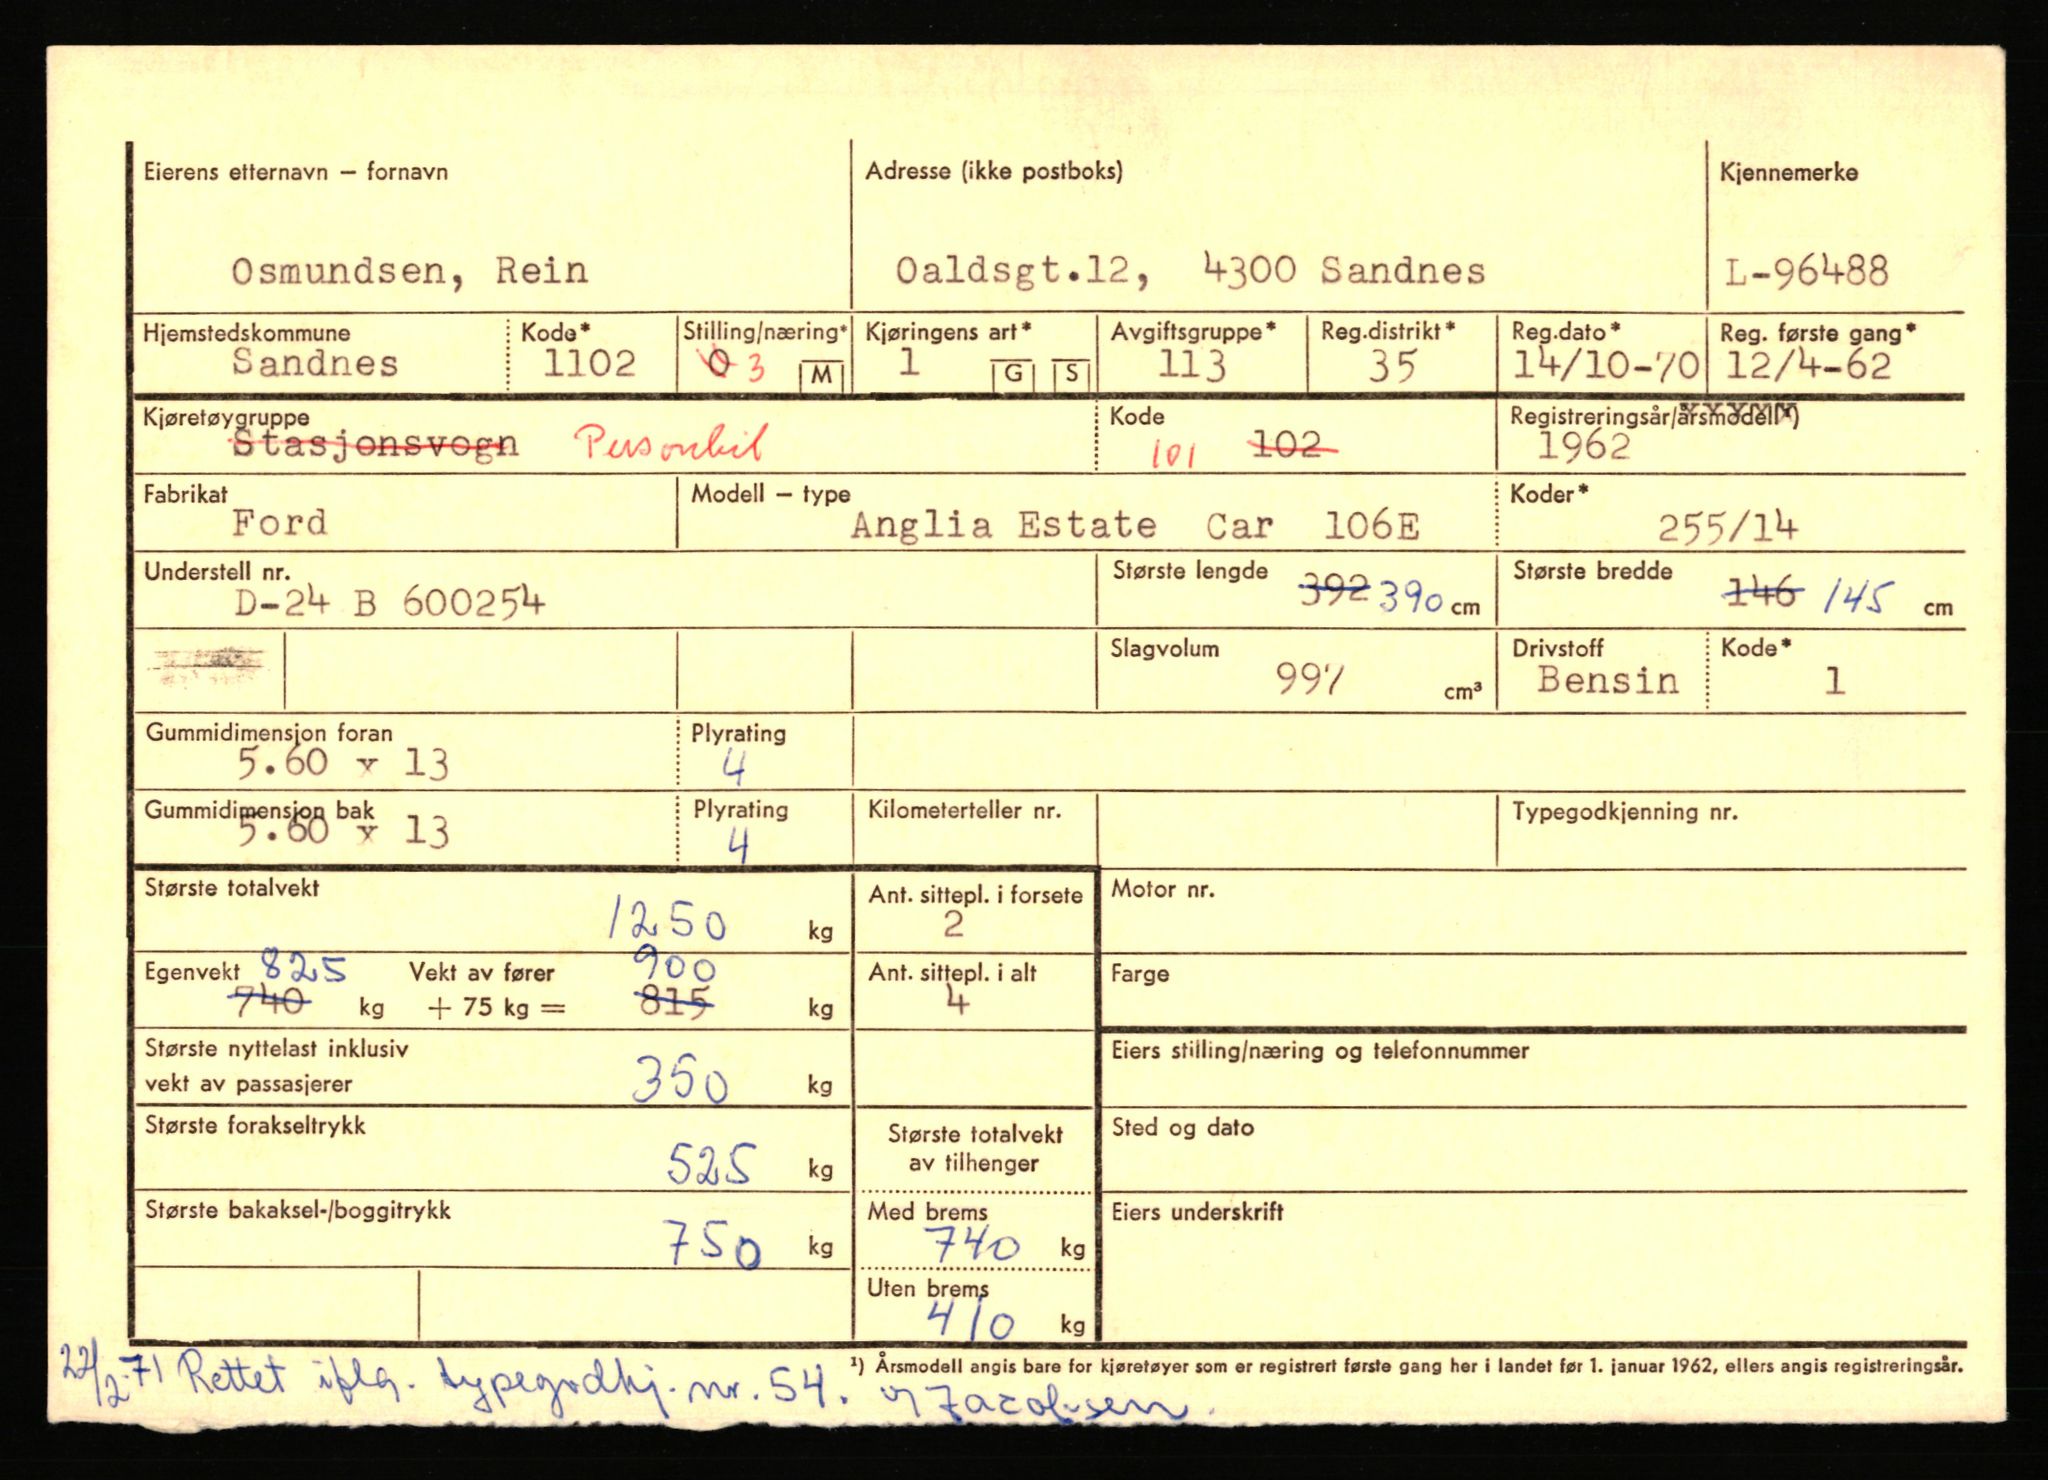 Eierens etternavn – fornavn Adresse (ikke postboks) Kjennemerke
Osmundsen, Rein Oaldsgt.12, 4300 Sandnes L-96488
Hjemstedskommune Kode* Stilling/næring* Kjøringens art* Avgiftsgruppe* Reg.distrikt* Reg.dato* Reg. første gang*
Sandnes 1102 0 3 M 1 G S 113 35 14/10-70 12/4-62
Kjøretøygruppe Kode Registreringsår/årsmodell¹)
Stasjonsvogn Personbil 101 102 1962
Fabrikat Modell – type Koder*
Ford Anglia Estate Car 106E 255/14
Understell nr. Største lengde 392 390 cm Største bredde 146 145 cm
D-24 B 600254
Slagvolum Drivstoff Kode*
997 cm³ Bensin 1
Gummidimensjon foran Plyrating
5.60 x 13 4
Gummidimensjon bak Plyrating Kilometerteller nr. Typegodkjenning nr.
5.60 x 13 4
Største totalvekt Ant. sittepl. i forsete Motor nr.
1250 kg 2
Egenvekt 825 Vekt av fører 900 Ant. sittepl. i alt Farge
740 kg + 75 kg = 815 kg 4
Største nyttelast inklusiv Eiers stilling/næring og telefonnummer
vekt av passasjerer 350 kg
Største forakseltrykk Største totalvekt Sted og dato
525 kg av tilhenger
Største bakaksel-/boggitrykk Med brems Eiers underskrift
750 kg 740 kg
Uten brems
410 kg
¹) Årsmodell angis bare for kjøretøyer som er registrert første gang her i landet før 1. januar 1962, ellers angis registreringsår.
22/2-71 Rettet iflg. typegodkj. nr. 54. Jacobsen.